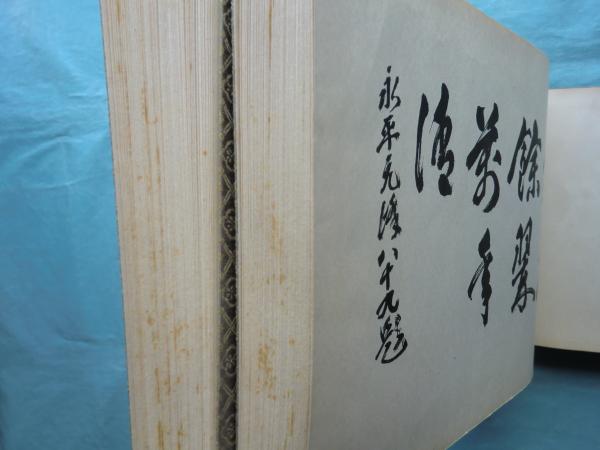 餘翠
萬年
清
永平元峰八十九題